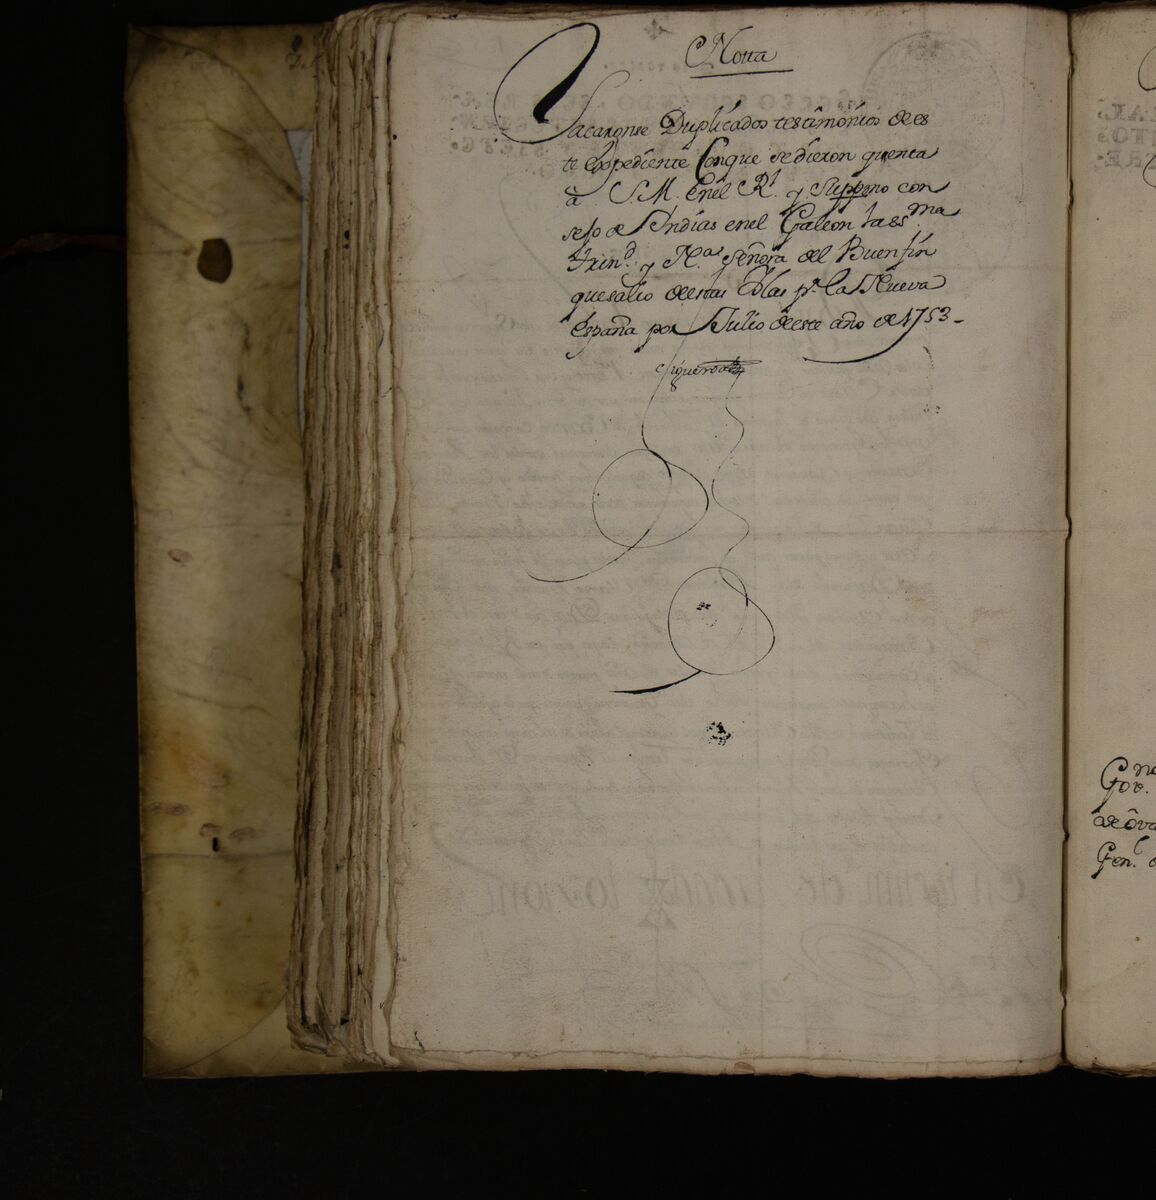 Notta
Sacaronse Duplicados testimonios de es
te expediente Conque se dieron quenta
â S. M. En el Rl. y Suppmo con
sejo de Indias en el Galeon la ssma
trind. y Na. Señora del Buen fin
que salio de estas Yslas pa. la Nueva
españa por Julio de este año de 1753-
Gov.no
Gen.l